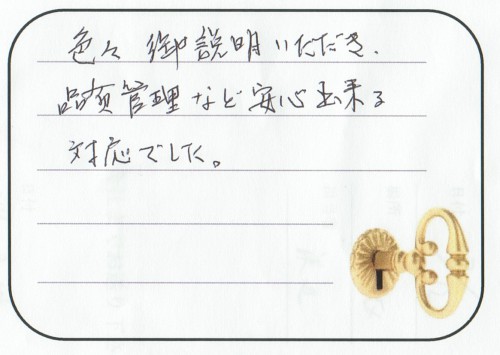 色々御説明いただき、
品質管理など安心出来る
対応でした。